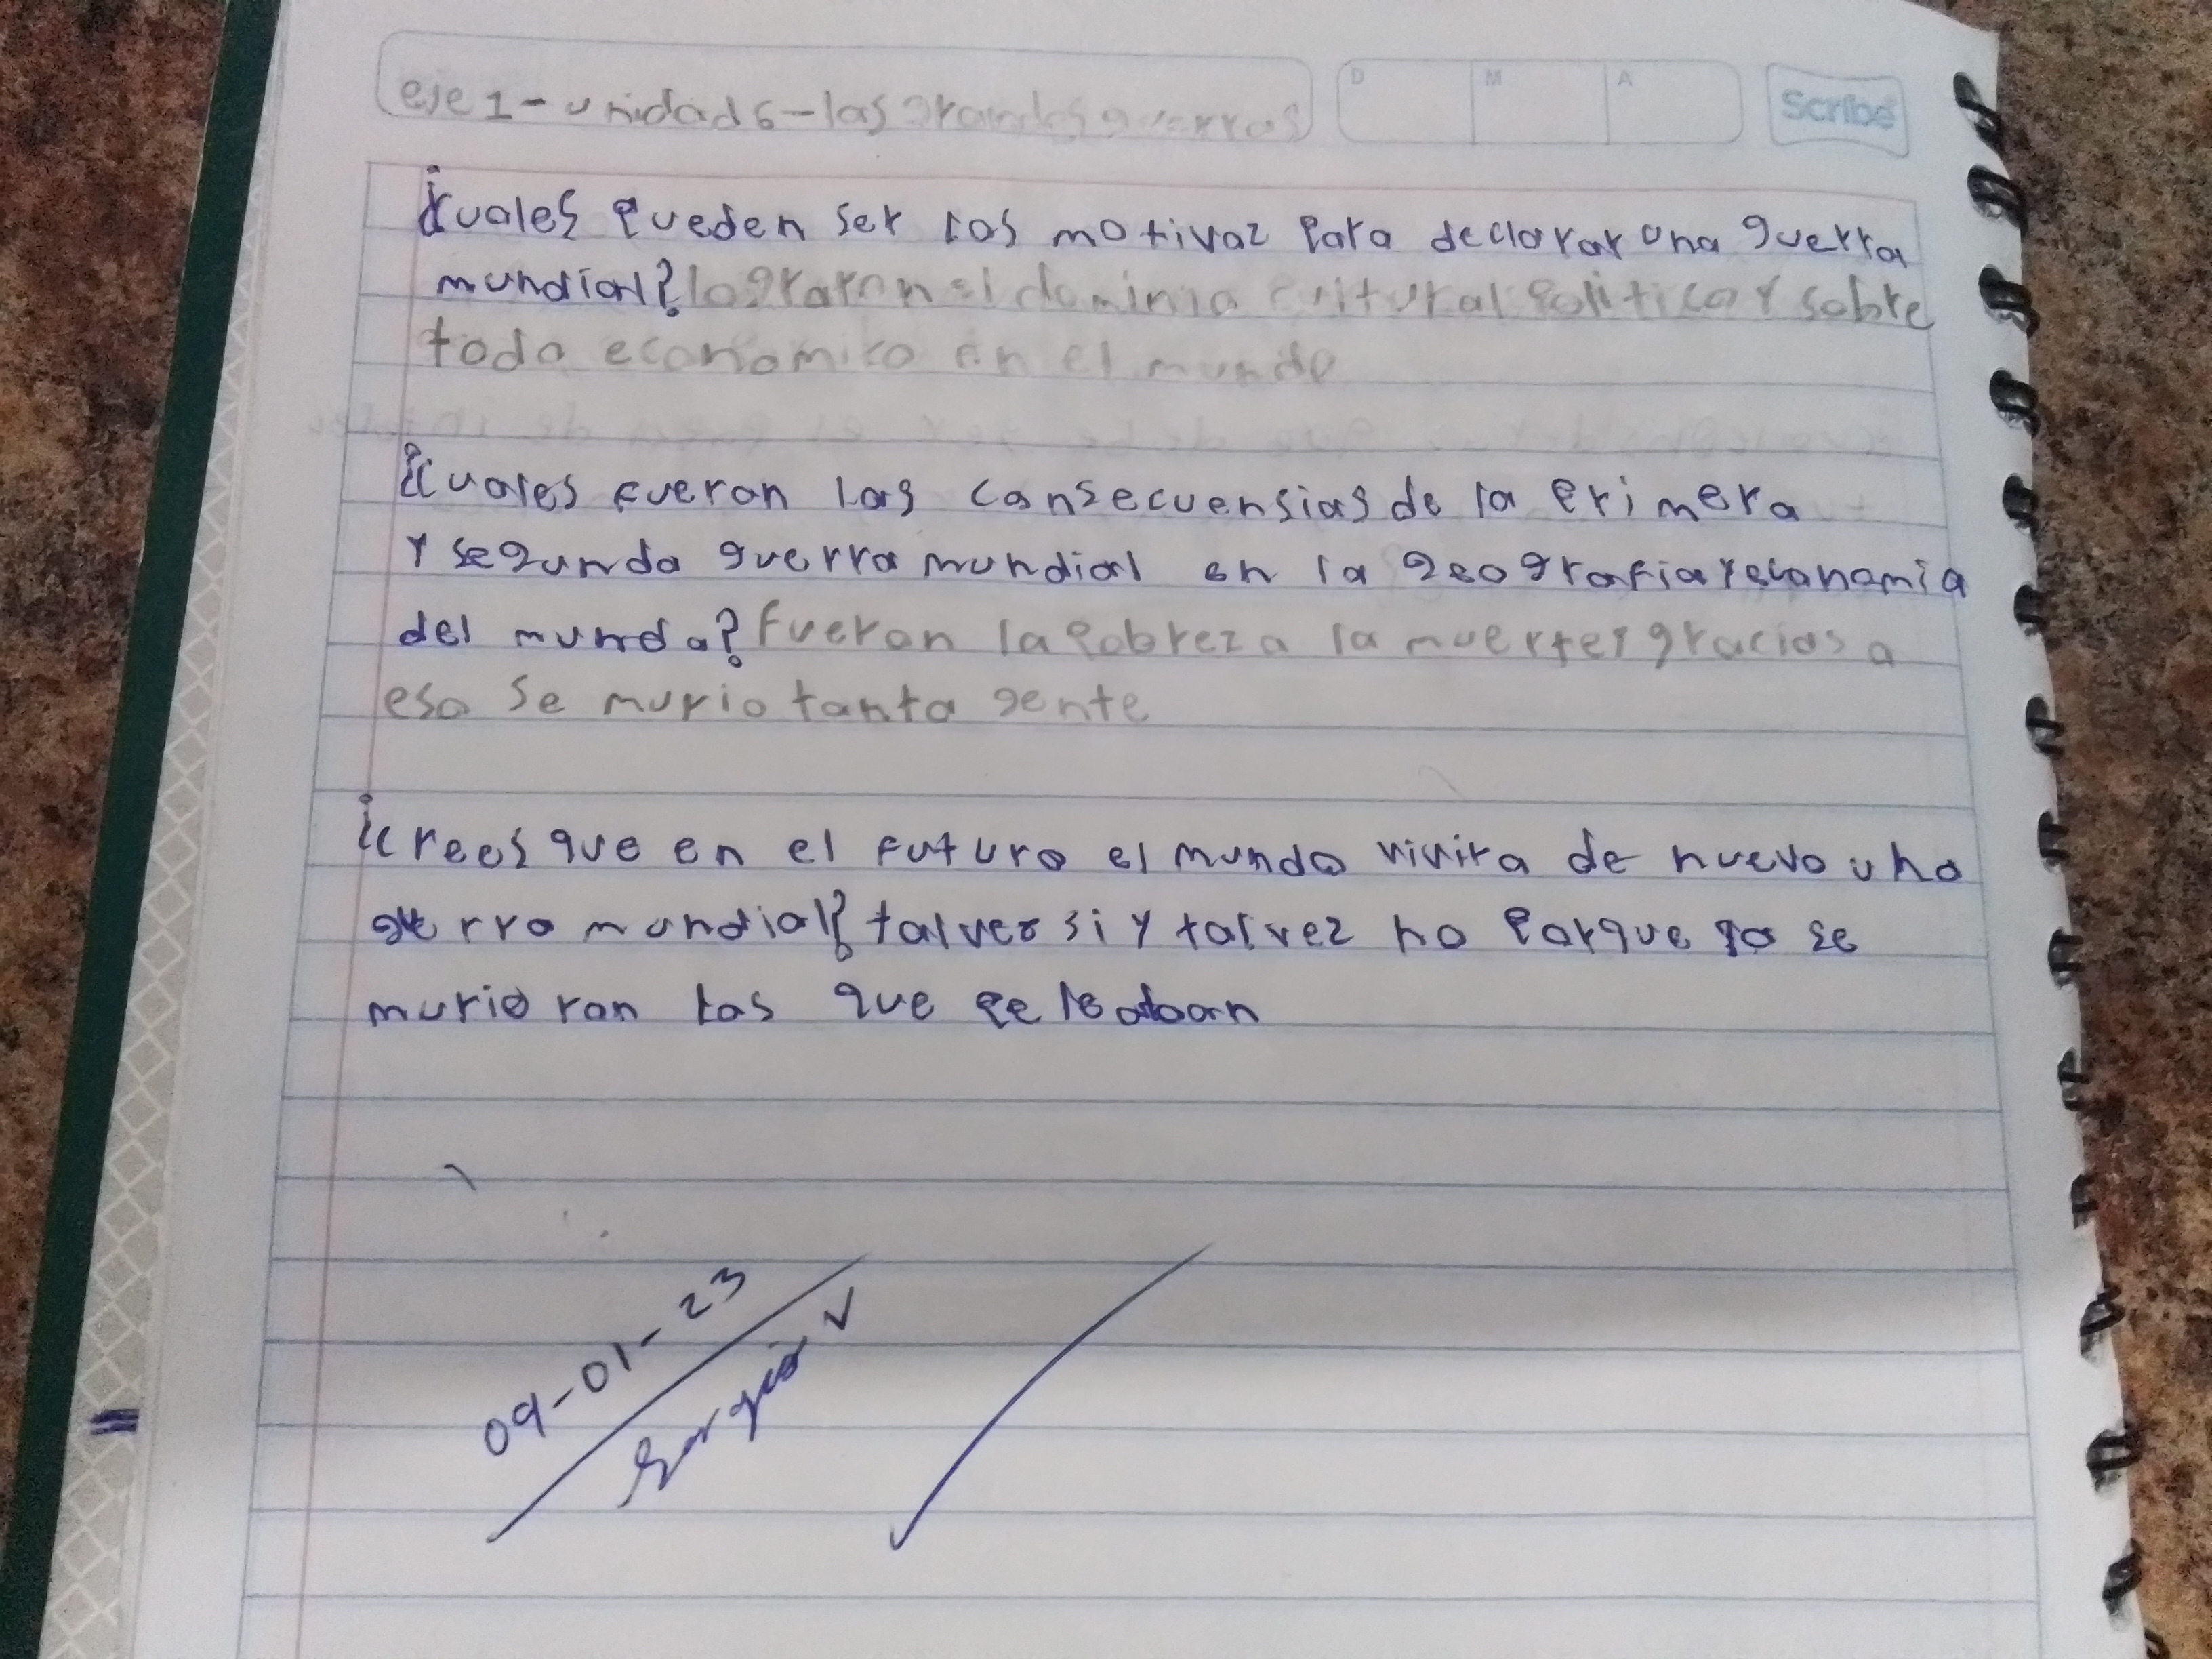 eje 1 - unidad 6 - las grandes guerras
D M A
Scribe
¿cuales pueden ser los motivoz para declarar una guerra
mundial? lograron el dominio cultural politico y sobre
todo economico en el mundo
¿cuales fueron las consecuensias de la primera
y segunda guerra mundial en la geografia y economia
del mundo? fueron la pobreza la muerte y gracias a
eso se murio tanta gente
¿crees que en el futuro el mundo vivira de nuevo una
guerra mundial? talvez si y talvez no porque ya se
murieron los que peleaban
09-01-23